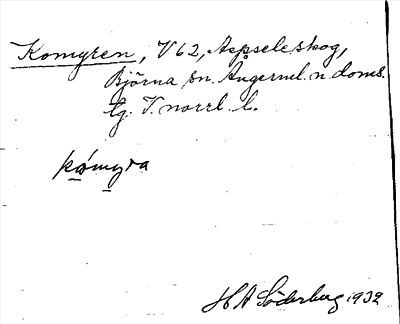 Komyren, V62, Aspseleskog,
Björna sn. Ångerml. n. doms.
lg. V. norrl. l.
kómyra
H A Söderberg 1932